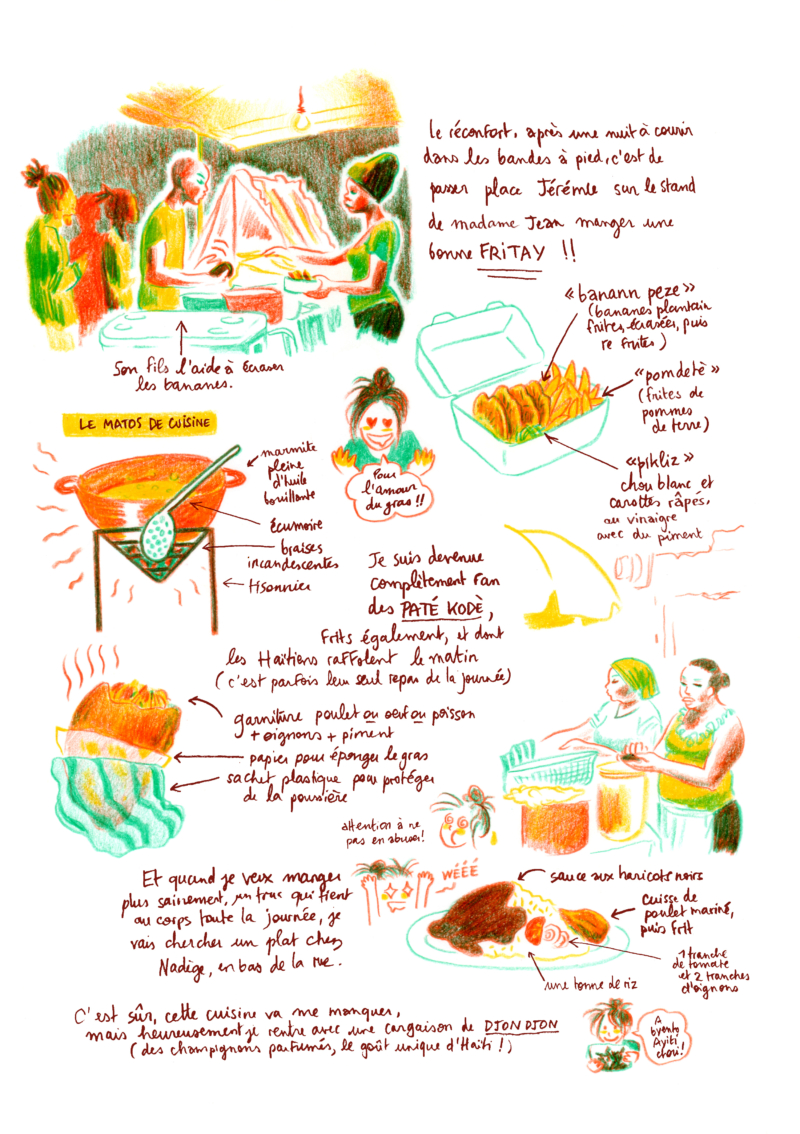 Le réconfort, après une nuit à courir
dans les bandes à pied, c'est de
passer place Jérémie sur le stand
de madame Jean manger une
bonne FRITAY !!
Son fils l'aide à écraser
les bananes.
« banann peze »
(bananes plantain
frites, écrasées, puis
re frites)
« pomdetè »
(frites de
pommes
de terre)
« pikliz »
chou blanc et
carottes râpés,
au vinaigre
avec du piment
LE MATOS DE CUISINE
marmite
pleine
d'huile
bouillante
écumoire
braises
incandescentes
tisonnier
Pour
l'amour
du gras !!
Je suis devenue
complètement fan
des PATÉ KODÈ,
frits également, et dont
les Haïtiens raffolent le matin
(c'est parfois leur seul repas de la journée)
garniture poulet ou oeuf ou poisson
+ oignons + piment
papier pour éponger le gras
sachet plastique pour protéger
de la poussière
attention à ne
pas en abuser!
Et quand je veux manger
plus sainement, un truc qui tient
au corps toute la journée, je
vais chercher un plat chez
Nadège, en bas de la rue.
WÉÉÉ
sauce aux haricots noirs
cuisse de
poulet mariné,
puis frit
1 tranche
de tomate
et 2 tranches
d'oignons
une tonne de riz
C'est sûr, cette cuisine va me manquer,
mais heureusement je rentre avec une cargaison de DJON DJON
(des champignons parfumés, le goût unique d'Haïti !)
A
byento
Ayiti
chou!